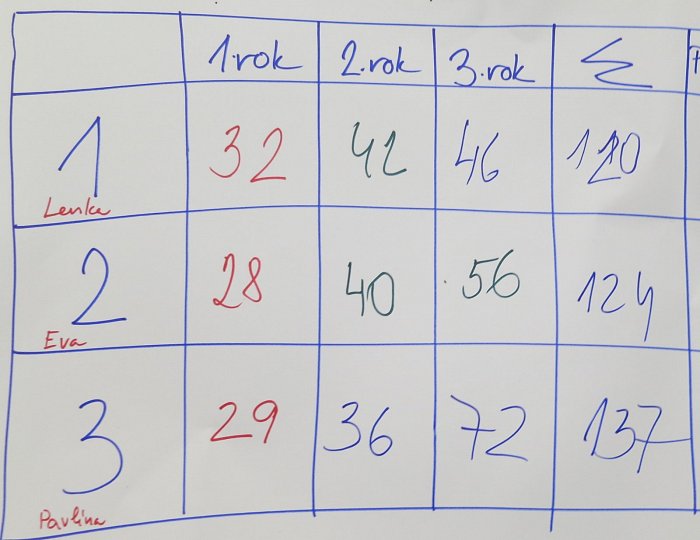 1.rok 2.rok 3.rok Σ
1 32 42 46 120
Lenka
2 28 40 56 124
Eva
3 29 36 72 137
Pavlína